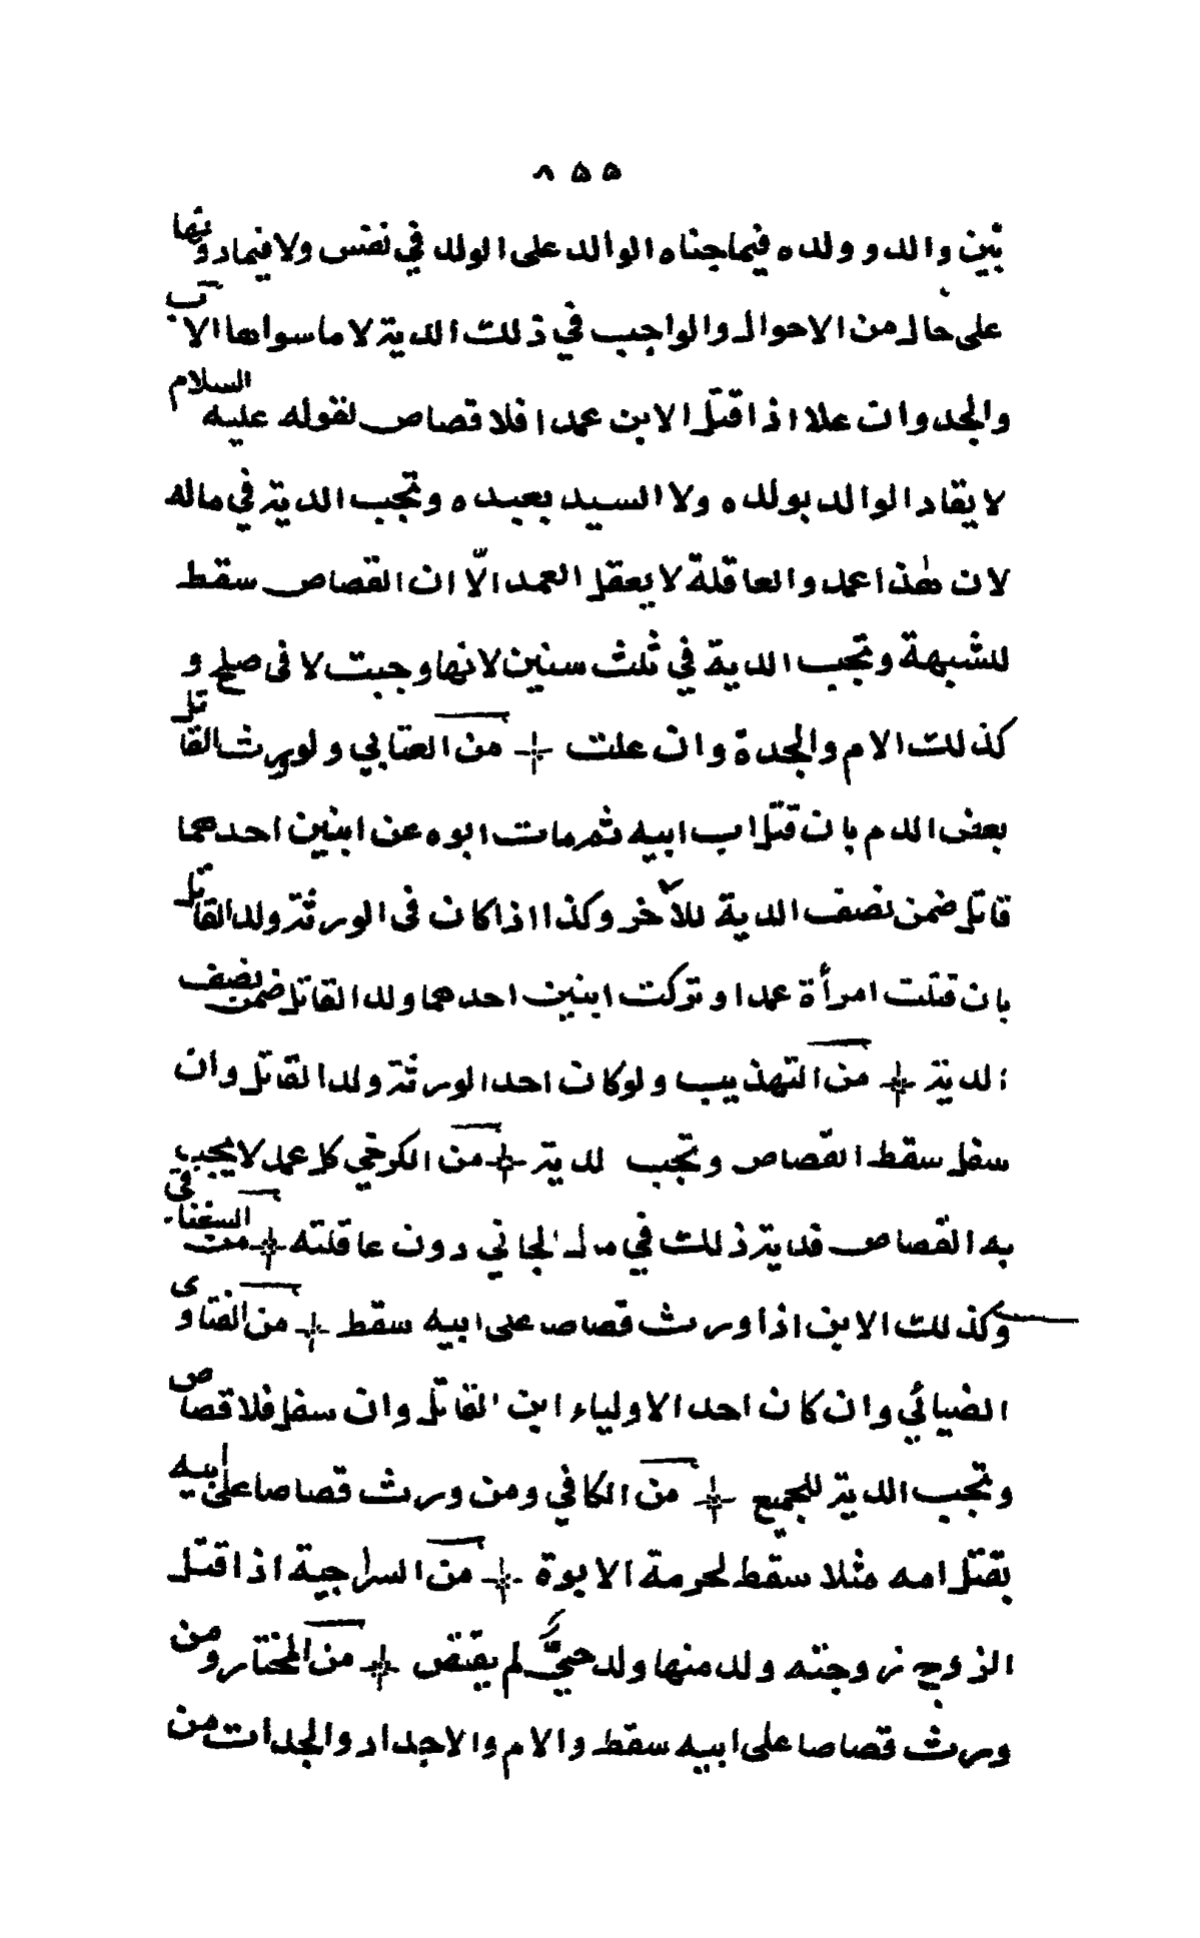 ٨٥٥
بين والد وولده فيما جناه الوالد على الولد في نفس ولا فيما دونها
على حال من الاحوال والواجب في ذلك الدية لا ما سواها الاب
والجد وان علا اذا قتل الابن عمدا فلا قصاص لقوله عليه السلام
لا يقاد الوالد بولده ولا السيد بعبده وتجب الدية في ماله
لان هذا عمد والعاقلة لا يعقل العمد الّا ان القصاص سقط
للشبهة وتجب الدية في ثلث سنين لانها وجبت لا فى صلح و
كذلك الام والجدة وان علت من العتابي ولو يرث القاتل
بعض الدم بان قتل اب ابيه ثم مات ابوه عن ابنين احدهما
قاتل ضمن نصف الدية للآخر وكذا اذا كان فى الورثة ولد القاتل
بان قتلت امرأة عمدا وتركت ابنين احدهما ولد القاتل ضمن نصف
الدية من التهذيب ولو كان احد الورثة ولد القاتل وان
سفل سقط القصاص وتجب لدية من الكرخي كل عمد لا يجب
به القصاص فدية ذلك في مال الجاني دون عاقلته من السغناقى
وكذلك الابن اذا ورث قصاصا على ابيه سقط من الفتاوى
الضيائي وان كان احد الاولياء ابن القاتل وان سفل فلا قصاص
وتجب الدية للجميع من الكافي ومن ورث قصاصا على ابيه
بقتل امه مثلا سقط لحرمة الابوة من السراجية اذا قتل
الزوج زوجته ولد منها ولد حيٌّ لم يقتص من المختار ومن
ورث قصاصا على ابيه سقط والام والاجداد والجدات من